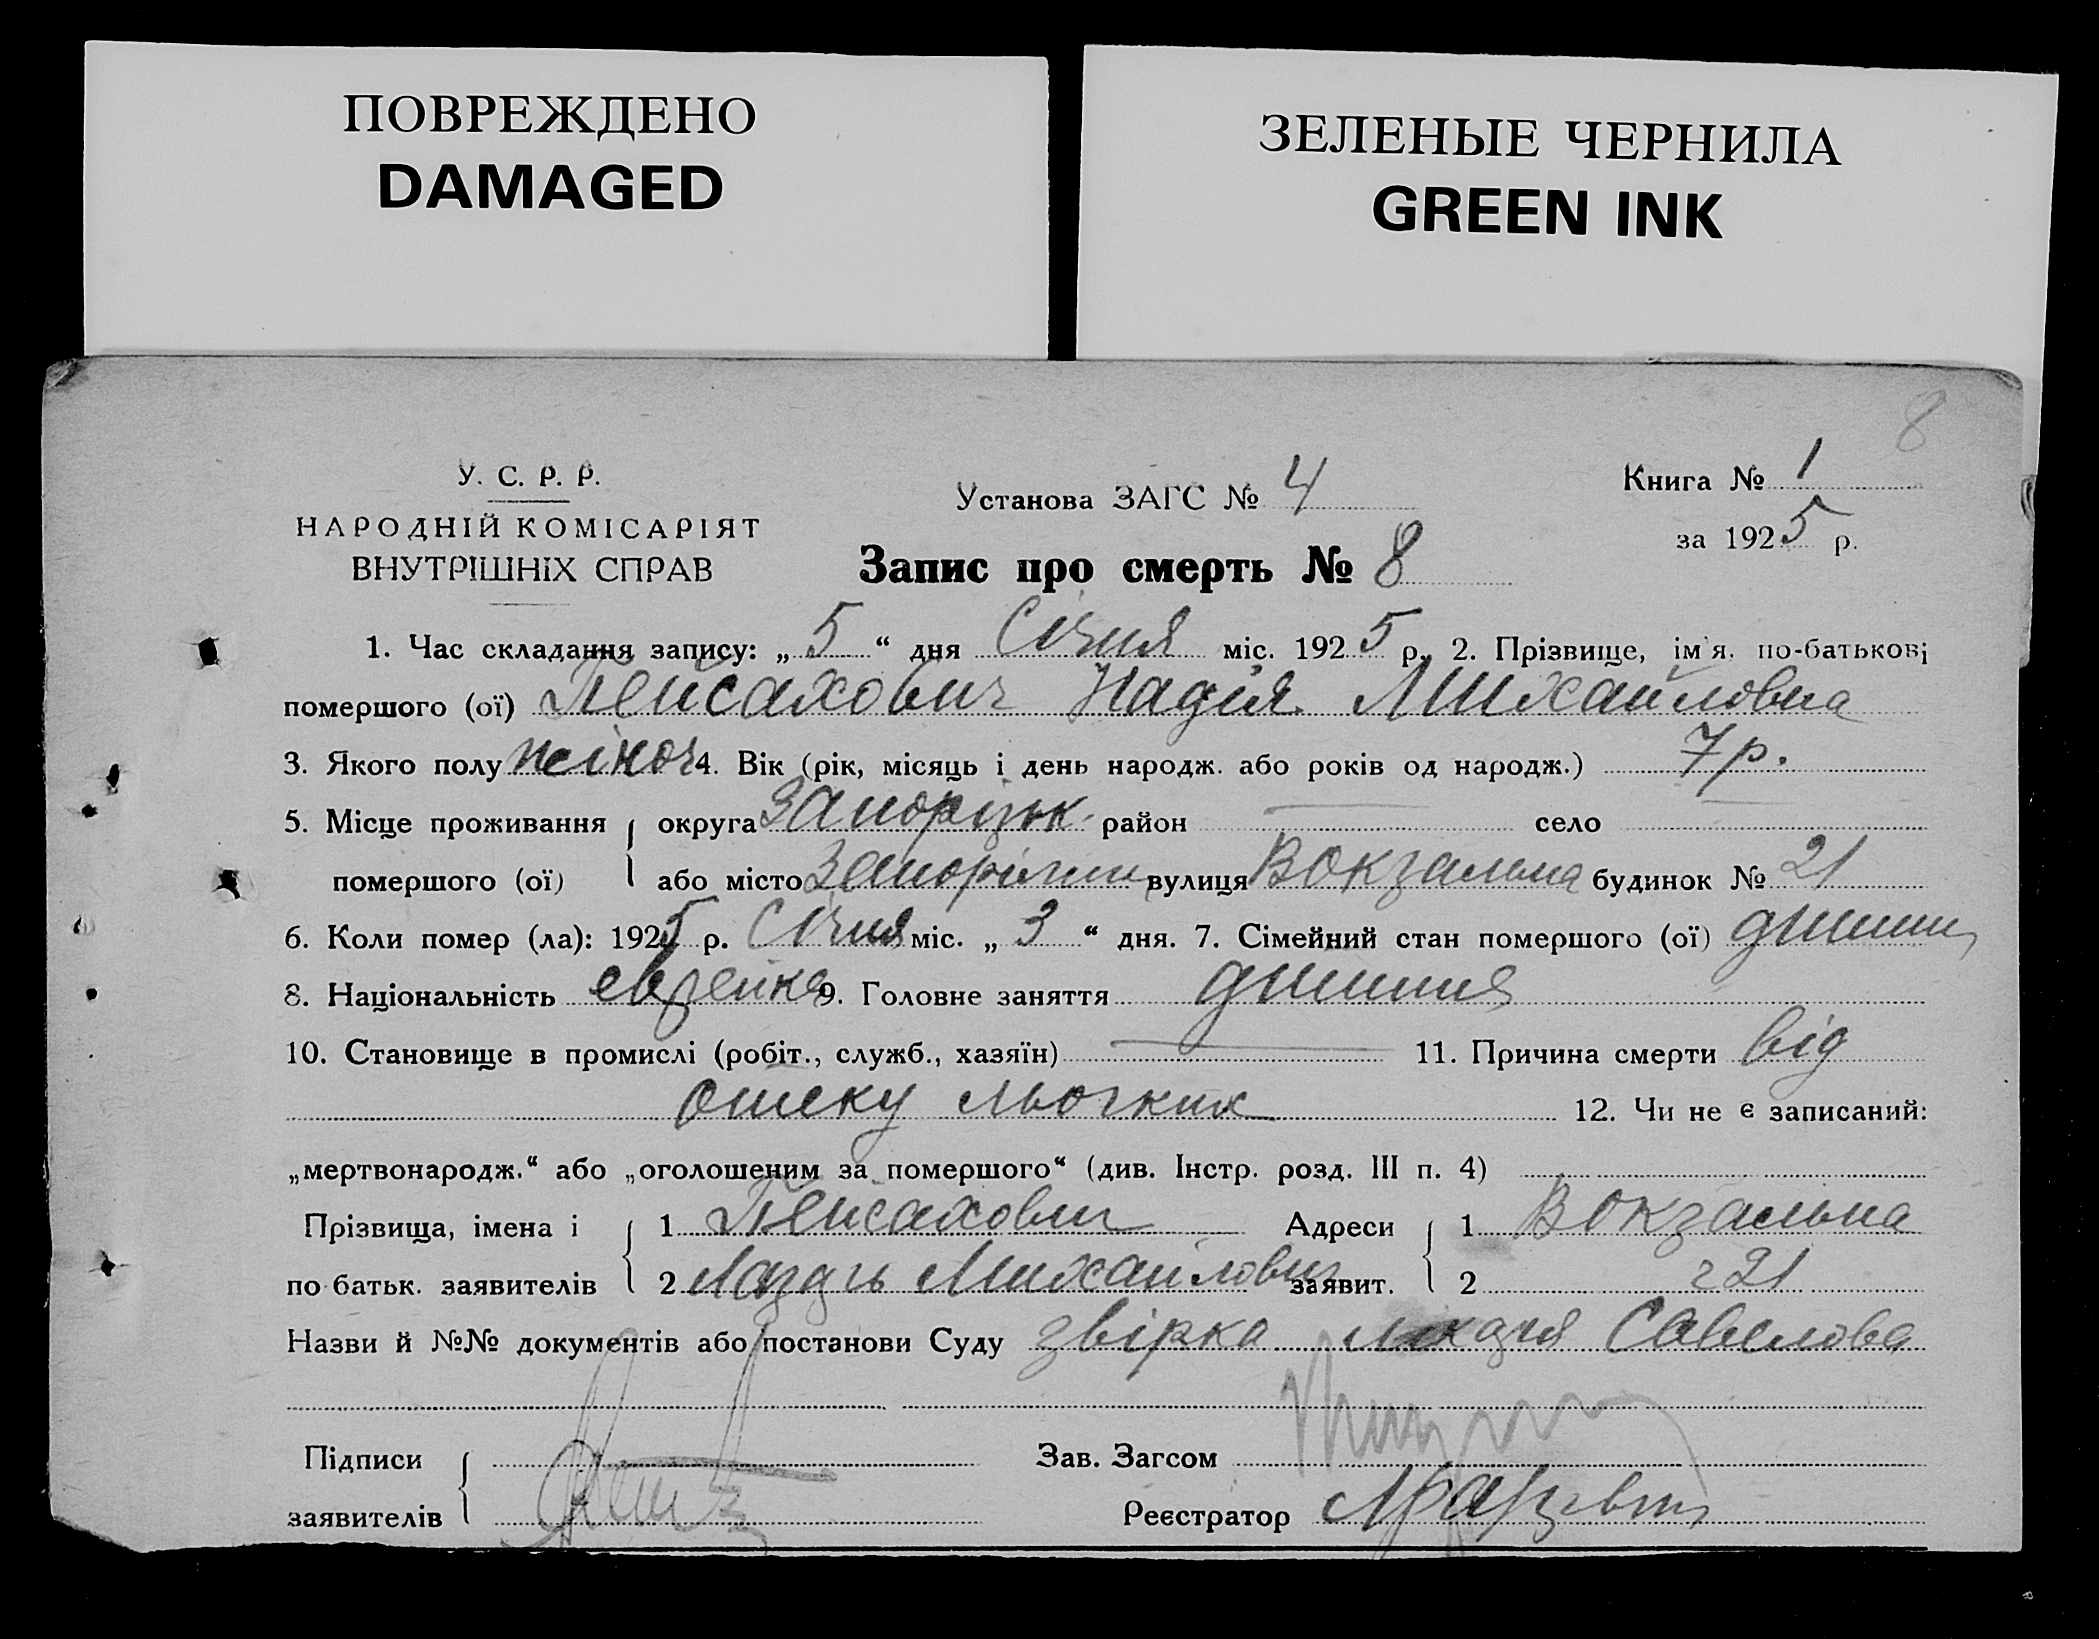 ПОВРЕЖДЕНО
DAMAGED
ЗЕЛЕНЫЕ ЧЕРНИЛА
GREEN INK
8
У. С. Р. Р.
НАРОДНІЙ КОМІСАРІЯТ
ВНУТРІШНІХ СПРАВ
Установа ЗАГС № 4
Книга № 1
за 1925 р.
Запис про смерть № 8
1. Час складання запису: „ 5 “ дня Січня міс. 1925 р. 2. Прізвище, ім'я. по-батькові
помершого (ої) Пейсахович Надія Михайловна
3. Якого полу жіноч 4. Вік (рік, місяць і день народж. або років од народж.) 7 р.
5. Місце проживання округа Запорізьк. район село
помершого (ої) або місто Запоріжжи вулиця Вокзальна будинок № 21
6. Коли помер (ла): 1925 р. Січня міс. „ 3 “ дня. 7. Сімейний стан помершого (ої)
8. Національність еврейка 9. Головне заняття
10. Становище в промислі (робіт., служб., хазяїн) 11. Причина смерти від
отеку льогких 12. Чи не є записаний:
„мертвонародж.“ або „оголошеним за помершого“ (див. Інстр. розд. III п. 4)
Прізвища, імена і 1 Пейсахович Адреси 1 Вокзальна
по батьк. заявителів 2 Михайлович заявит. 2 21
Назви й №№ документів або постанови Суду звірка Савелова
Підписи
заявителів
Зав. Загсом
Реєстратор